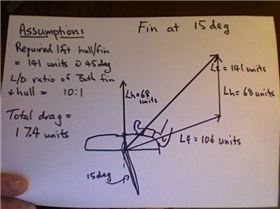 Assumptions
Fin at 15deg
Required lift hull/fin
= 141 units @ 45deg
L/D ratio of Both fin
+ hull = 10:1
Total drag =
17.4 units
Lh=68
units
Lt = 141
units
Lh = 68
units
Lf = 106 units
15deg